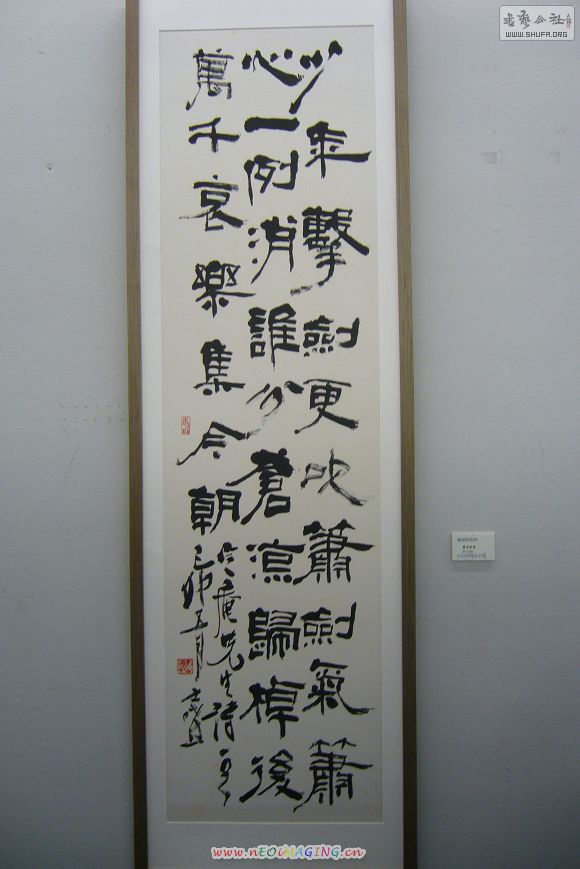 书艺公社
WWW.SHUFA.ORG
少年擊劍更吹簫劍氣簫
心一例消誰分蒼涼歸棹後
萬千哀樂集今朝
定庵先生詩一首
己卯五月
www.nEOiMAGiNG.cn